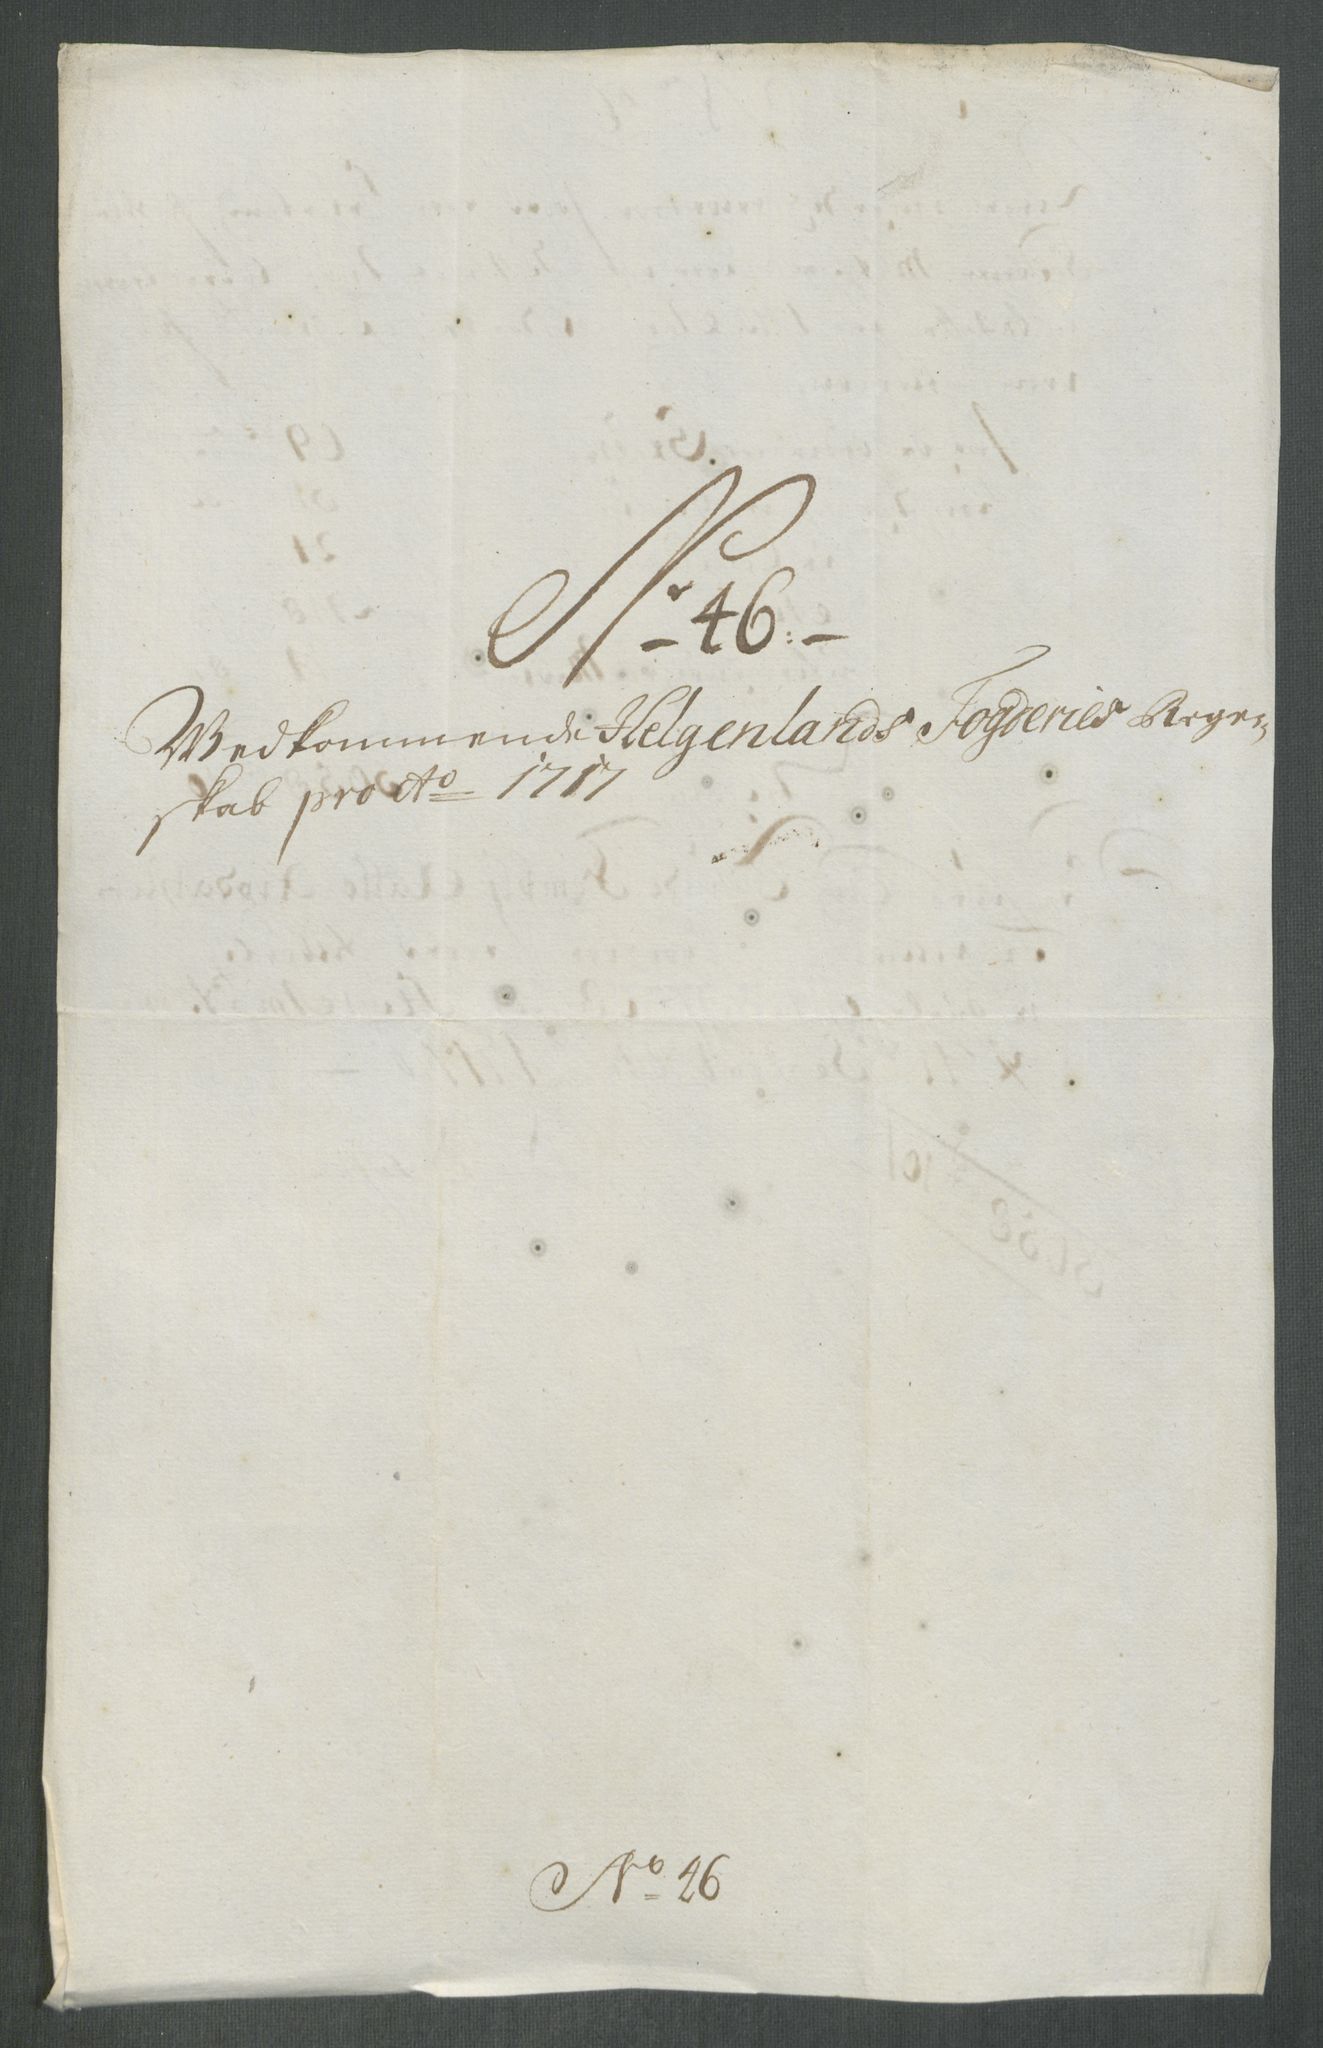 Nr 46:-
Wedkommende Helgenlands Fogderies Regen-
skab pro Ao 1717
No 46